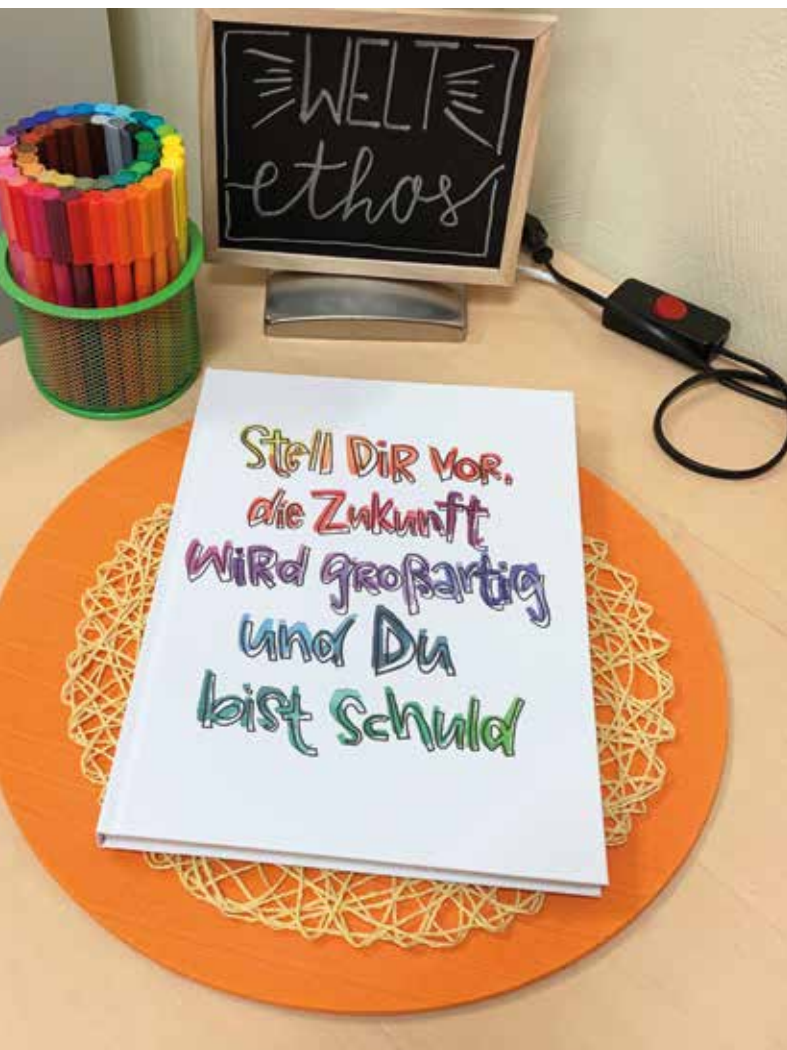 WELT
ethos
Stell DiR VoR,
die Zukunft
WiRd gRoßartig
und Du
bist Schuld